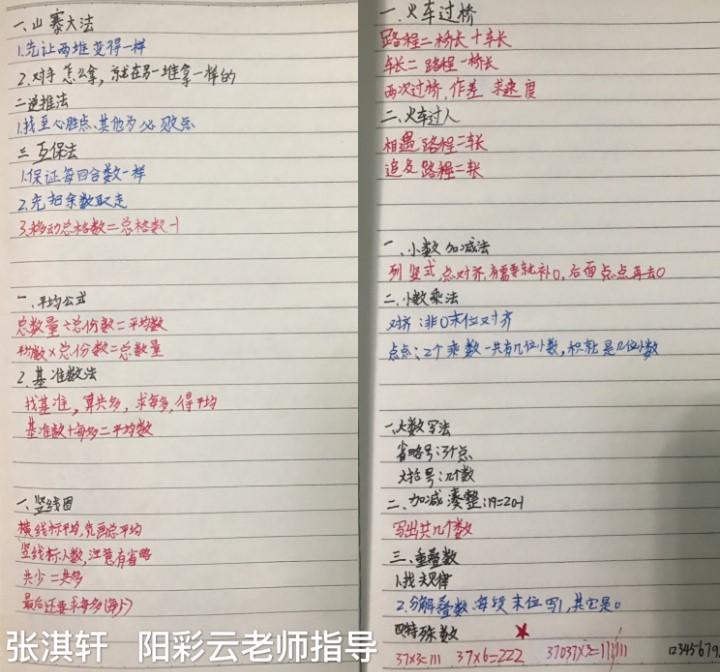 一、山寨大法
1.先让两堆变得一样
2.对手怎么拿，就在另一堆拿一样的
二逆推法
1.找至心胜点、其他为必败点
三 互保法
1.保证每回合数一样
2.先把余数取走
3.移动总格数=总格数-1
一、平均公式
总数量÷总份数=平均数
平均数×总份数=总数量
2.基准数法
找基准，算共多，求每多，得平均
基准数+每多=平均数
一、竖线图
横线标平均，先画总平均
竖线标人数，注意有省略
共少=共多
最后还要求每多(每少)
张淇轩 阳彩云老师指导
一.火车过桥
路程=桥长+车长
车长=路程-桥长
两次过桥，作差 求速度
二、火车过人
相遇路程=车长
追及路程=车长
一、小数加减法
列竖式 点对齐，有需要就补0，后面点点再去0
二、小数乘法
对齐：非0末位对齐
点点：2个乘数一共有几位小数，积就是几位小数
一、大数写法
省略号：3个点
大括号：几个数
二、加减凑整：19=20-1
写出共几个数
三、重叠数
1.找规律
2.分解叠数，每段末位写1，其它是0
四特殊数
37×3=111 37×6=222 37037×3=111111 12345679